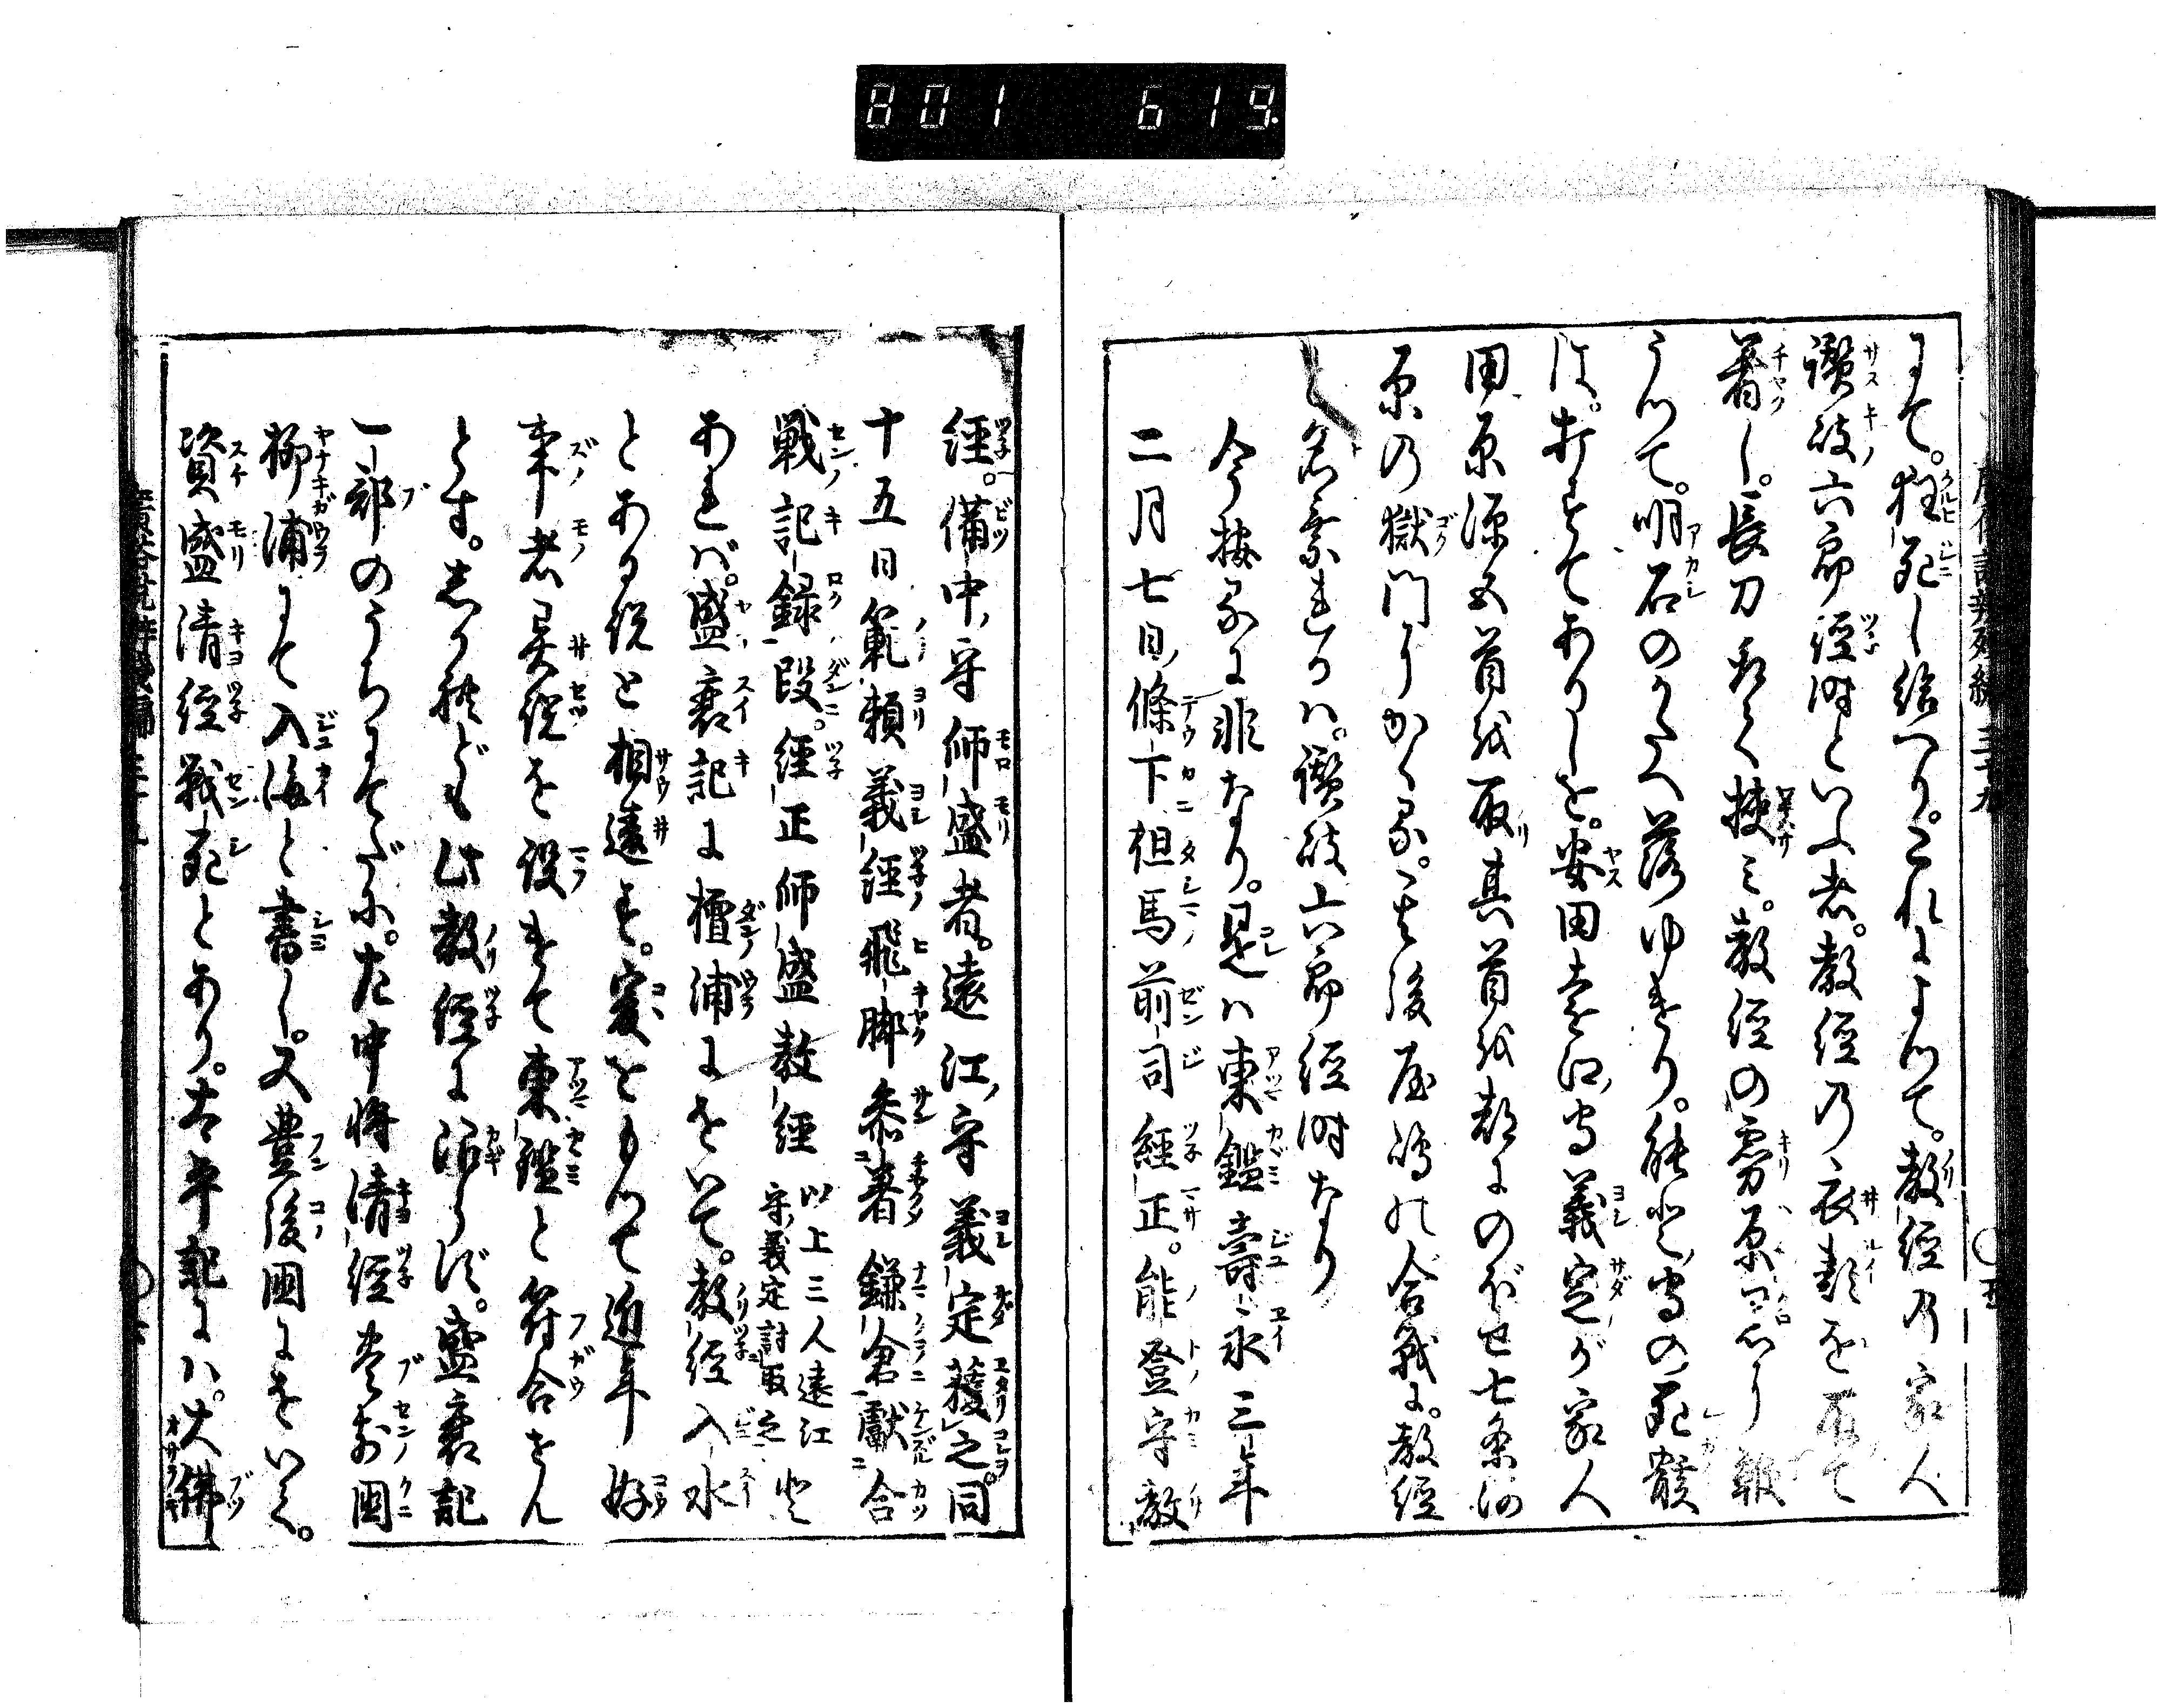 801 619.
にて。狂死し給へり。これによつて。教経の家人
讃岐六郎経時といふ者。教経の衣類を
着し。長刀かく挟ミ。教経の
うつて。明石のかたへ落ゆきけり。能登守の死骸
ハ。打すてありしを。安田遠江守義定が家人
田原源五首を取其首を都にのぼせ七条河
原の獄門にかくる。其後屋嶋の合戦に。教経
と名乗けるハ。讃岐六郎経時なり
今按るに非なり。是ハ東鑑壽永三年
二月七日條下但馬前司経正。能登守教
経。備中守師盛者。遠江守義定獲之。同
十五日範頼義経飛脚参着鎌倉献合
戦記録段。経正師盛教経 以上三人遠江守義定討取之 と
あれバ。盛衰記に檀浦にをいて。教経入水
とある説と相違す。爰をもつて近年好
事者異説を設けて東鑑と符合せん
とす。しかれども此教経に限らず。盛衰記
一部のうちにそだに。左中将清経豊前国
柳浦にて入海と書し。又豊後国にをいて。
資盛清経戦死とあり。太平記にハ。大佛